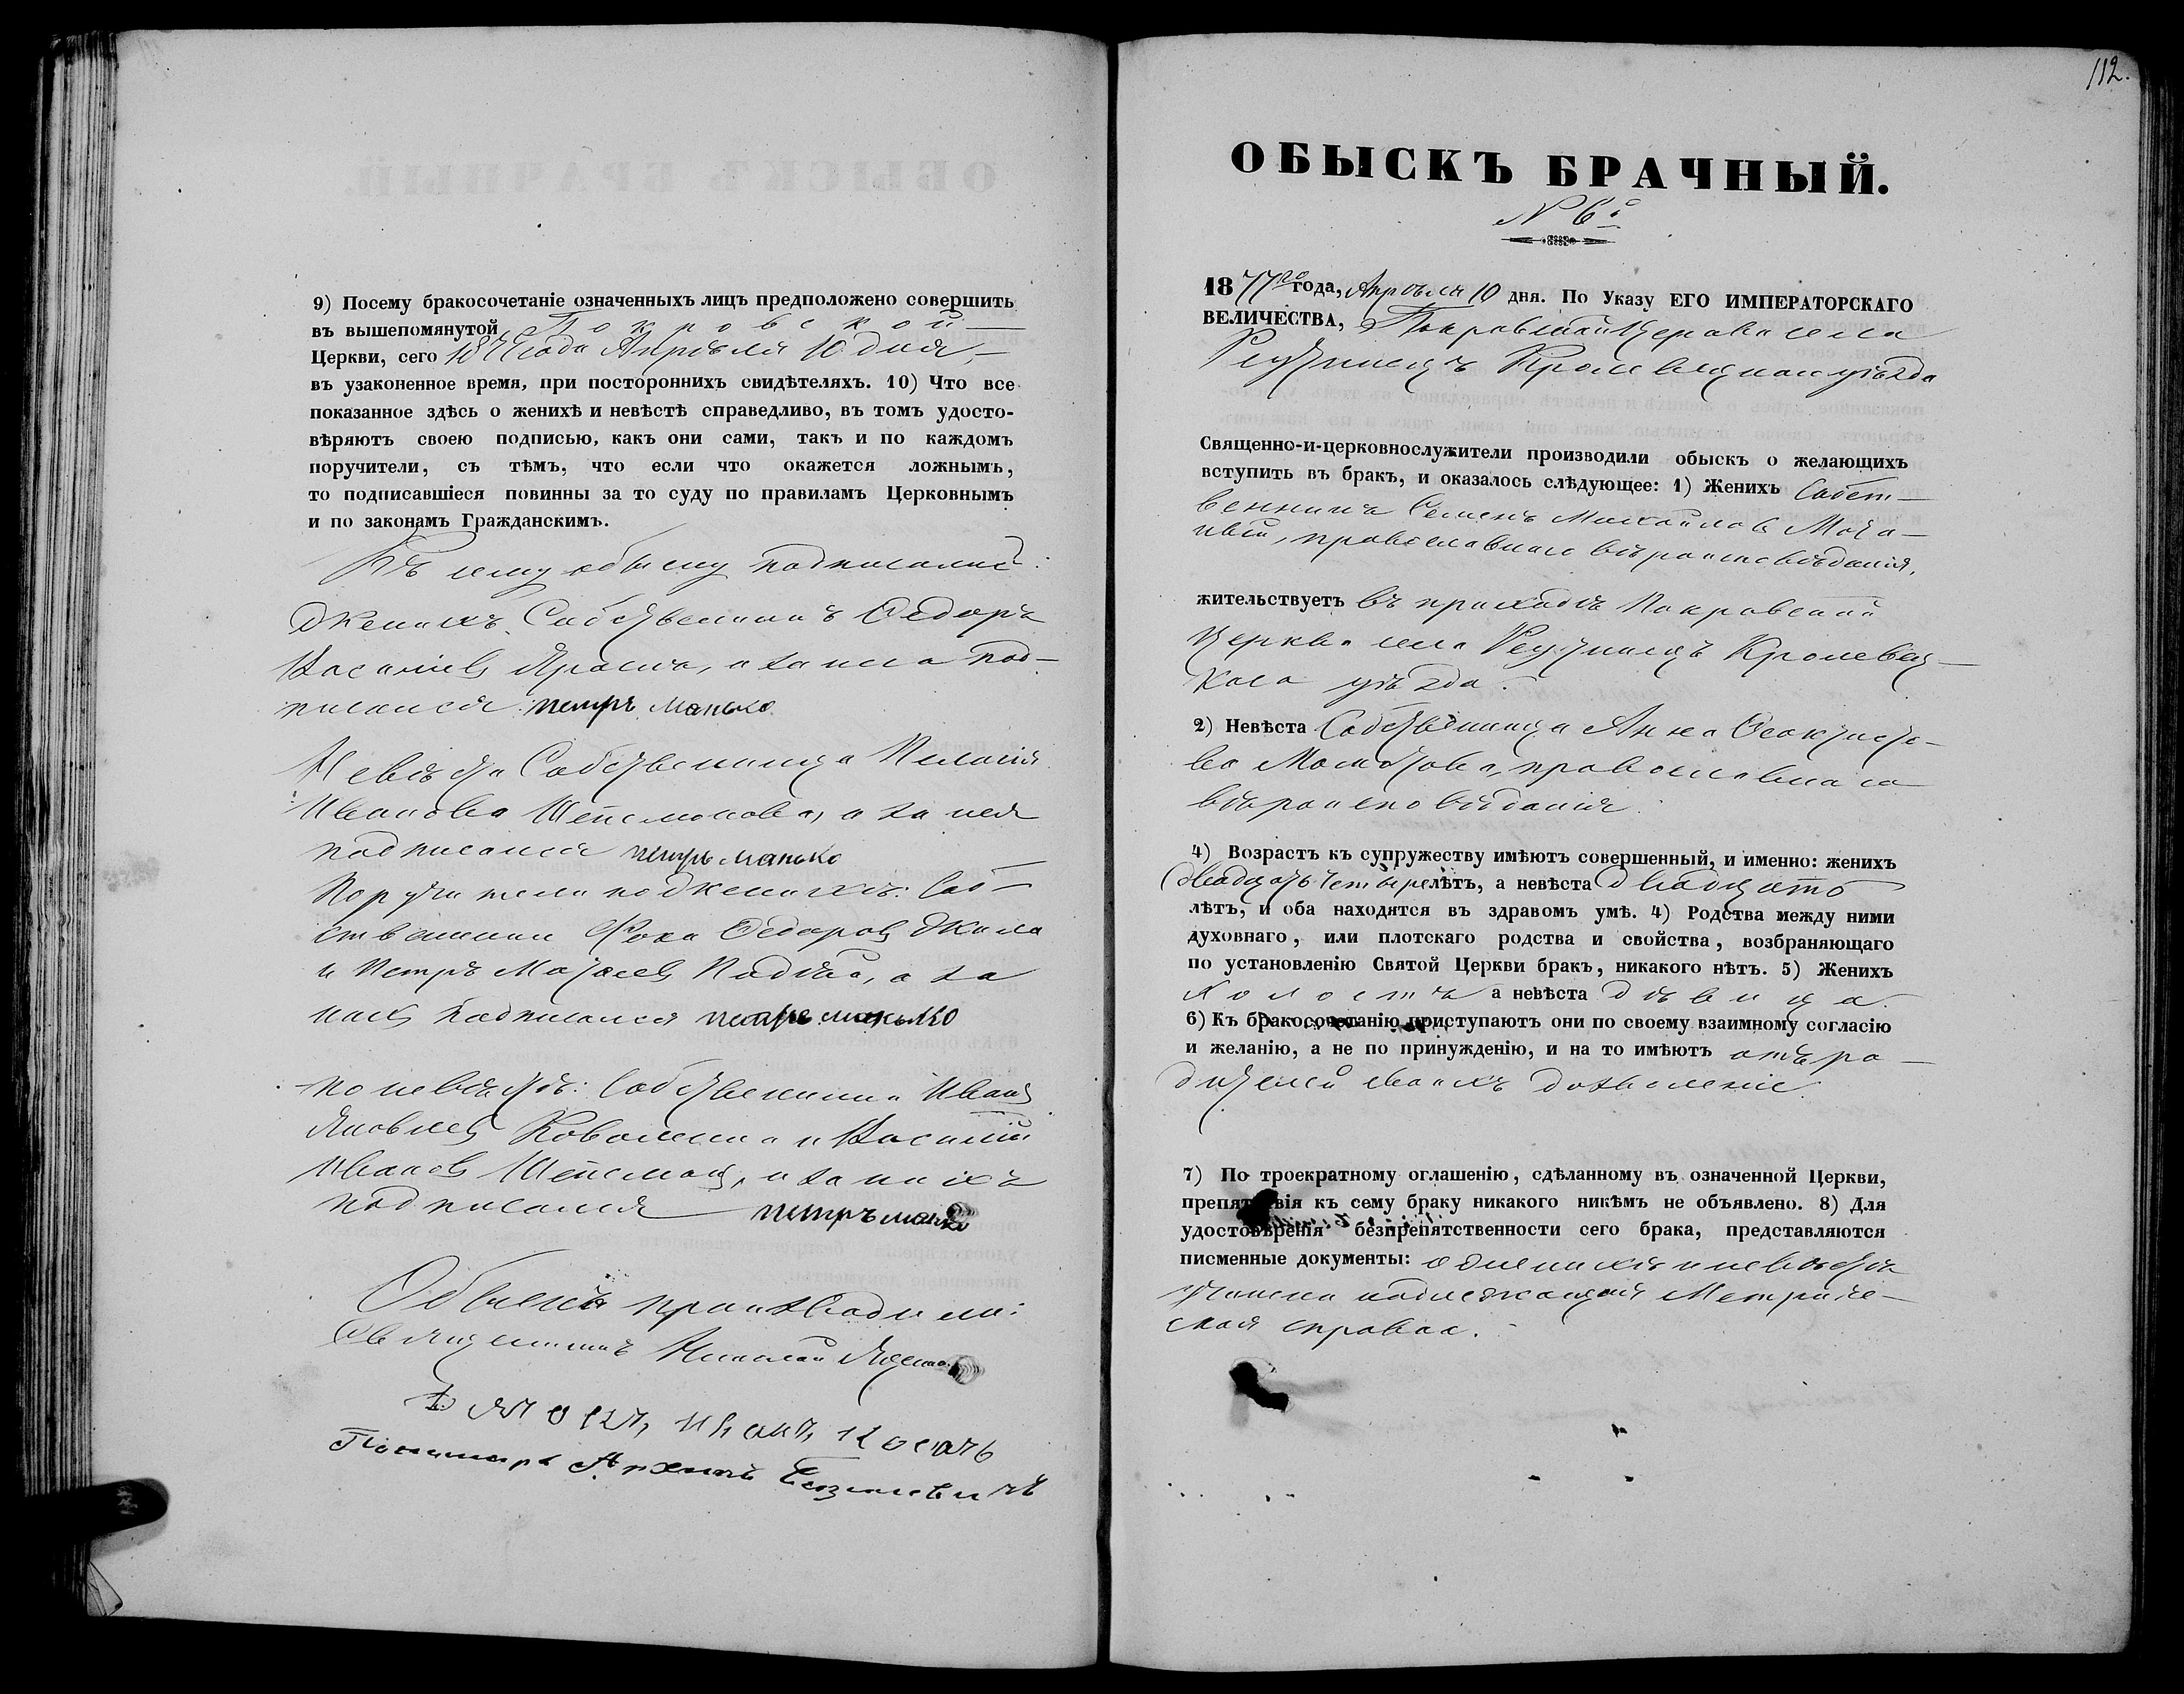 9) Посему бракосочетаніе означенныхъ лицъ предположено совершить
въ вышепомянутой, Покровской
Церкви, сего 1877 года Апрѣля 10 дня,
въ узаконенное время, при постороннихъ свидѣтеляхъ. 10) Что все
показанное здѣсь о женихѣ и невѣстѣ справедливо, въ томъ удосто-
вѣряютъ своею подписью, какъ они сами, такъ и по каждомъ
поручители, съ тѣмъ, что если что окажется ложнымъ,
то подписавшіеся повинны за то суду по правиламъ Церковнымъ
и по законамъ Гражданскимъ.
Къ сему обыску подписались:
Женихъ Собственникъ Ѳедоръ
Васильевъ а за него под-
писался петръ манько
Невѣста Собственница
Иванова а за нея
подписался петръ манько
Поручители по женихѣ: Соб-
ственники Ѳедоровъ
и Петръ а за
нихъ подписался петръ манько
по невѣстѣ: Собственники Иванъ
Яковлевъ и Василій
Ивановъ а за нихъ
подписался петръ манько
Обыскъ производили:
Священникъ Николай
Дячокъ Иванъ
Пономарь
112.
ОБЫСКЪ БРАЧНЫЙ.
№ 6й
1877го года, Апрѣля 10 дня. По Указу ЕГО ИМПЕРАТОРСКАГО
ВЕЛИЧЕСТВА, Покровской Церкви села
Реутинецъ Кролевецкаго уѣзда
Священно-и-церковнослужители производили обыскъ о желающихъ
вступить въ бракъ, и оказалось слѣдующее: 1) Женихъ Собст-
венникъ Семенъ Михайловъ
православнаго вѣроисповѣданія,
жительствуетъ въ приходѣ Покровской
Церкви села Реутинецъ Кролевец-
каго уѣзда.
2) Невѣста Собственница Анна Ѳеоктисто-
ва православнаго
вѣроисповѣданія
4) Возрастъ къ супружеству имѣютъ совершенный, и именно: женихъ
двадцать четыре лѣтъ, а невѣста двадцать
лѣтъ, и оба находятся въ здравомъ умѣ. 4) Родства между ними
духовнаго, или плотскаго родства и свойства, возбраняющаго
по установленію Святой Церкви бракъ, никакого нѣтъ. 5) Женихъ
холостъ а невѣста дѣвица.
6) Къ бракосочетанію приступаютъ они по своему взаимному согласію
и желанію, а не по принужденію, и на то имѣютъ отъ ро-
дителей своихъ дозволеніе
7) По троекратному оглашенію, сдѣланному въ означенной Церкви,
препятствія къ сему браку никакого никѣмъ не объявлено. 8) Для
удостовѣренія безпрепятственности сего брака, представляются
писменные документы: о женихѣ и невѣстѣ
Метриче-
ская справка.